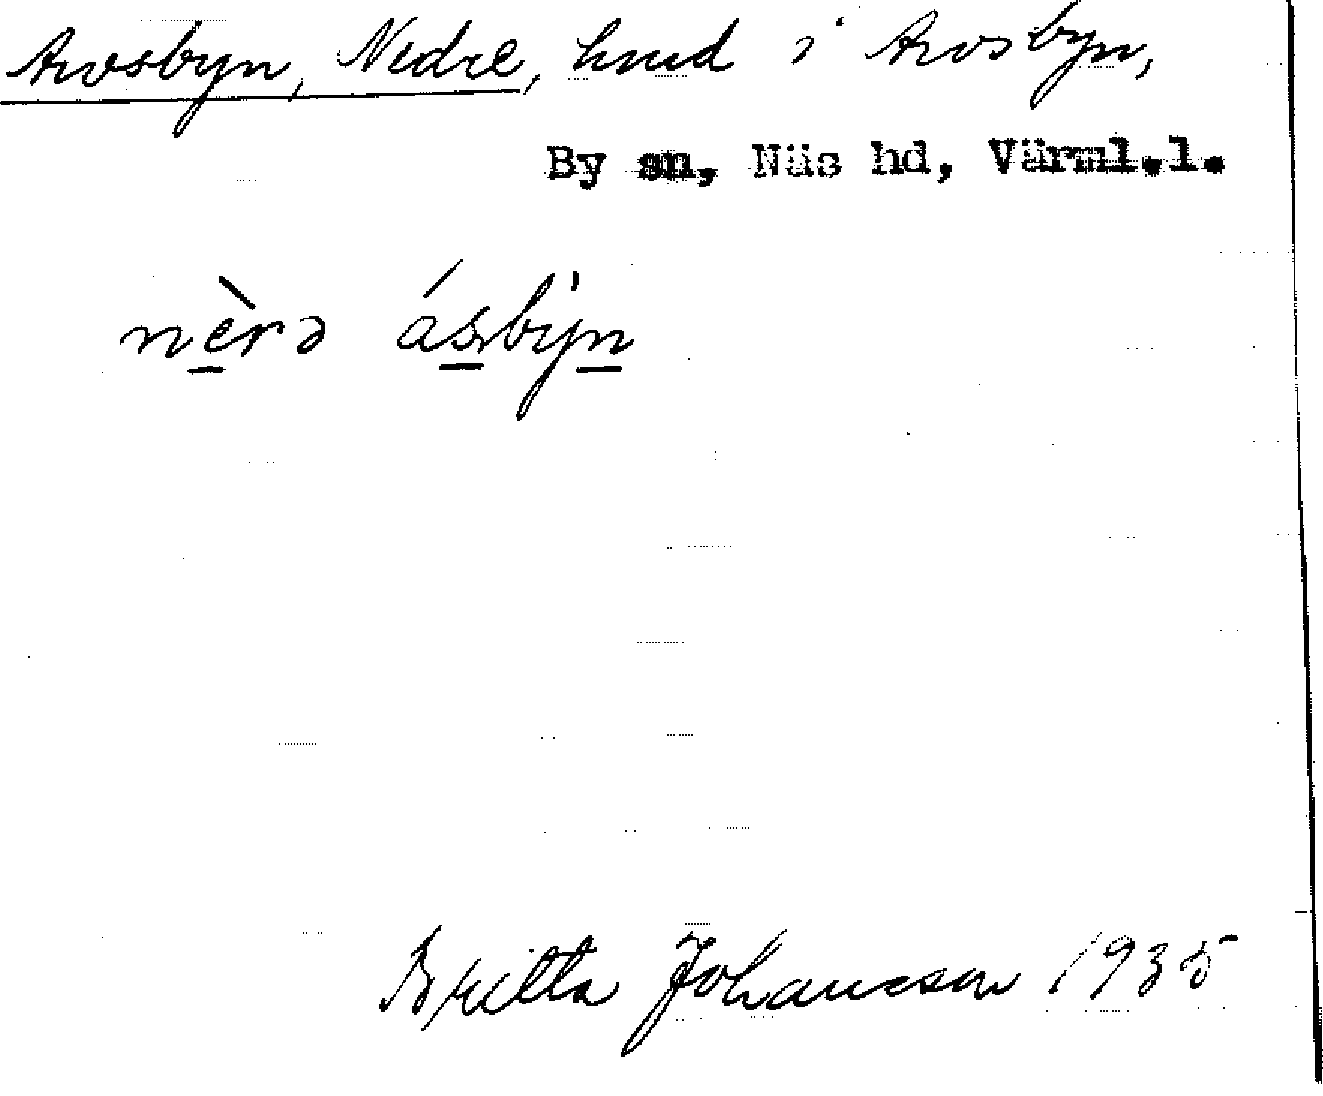 Avosbyn, Nedre, hmd i Avosbyn,
By sn, Näs hd, Värml.l.
nèrə ásbyn
Britta Johansson 1935